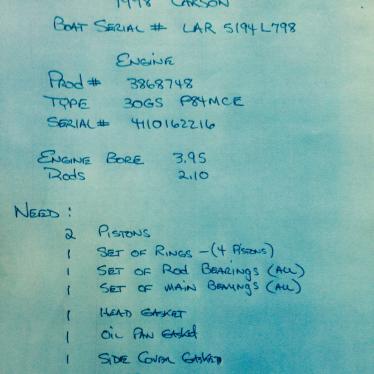 1998 CARSON
BOAT SERIAL # LAR 5194L798
ENGINE
Prod # 3868748
TYPE 30GS P84MCE
SERIAL # 4110162216
ENGINE BORE 3.95
Rods 2.10
NEED:
2 PISTONS
1 SET OF RINGS - (4 PISTONS)
1 SET OF ROD BEARINGS (ALL)
1 SET OF MAIN BEARINGS (ALL)
1 HEAD GASKET
1 OIL PAN GASKET
1 SIDE COVER GASKET